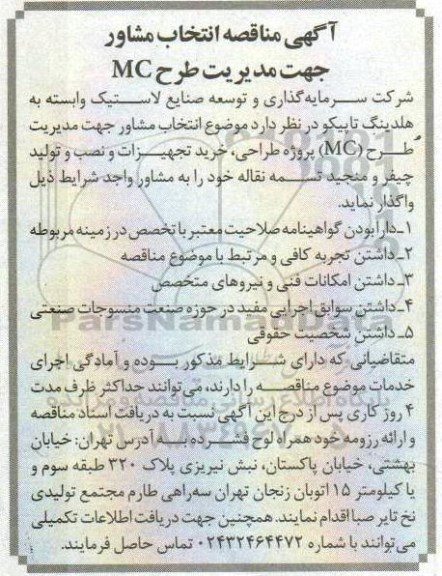 آگهی مناقصه انتخاب مشاور
جهت مدیریت طرح MC
شرکت سرمایه‌گذاری و توسعه صنایع لاستیک وابسته به
هلدینگ تاپیکو در نظر دارد موضوع انتخاب مشاور جهت مدیریت
طرح (MC) پروژه طراحی، خرید تجهیزات و نصب و تولید
چیفر و منجید تسمه نقاله خود را به مشاور واجد شرایط ذیل
واگذار نماید.
۱ـ دارا بودن گواهینامه صلاحیت معتبر با تخصص در زمینه مربوطه
۲ـ داشتن تجربه کافی و مرتبط با موضوع مناقصه
۳ـ داشتن امکانات فنی و نیروهای متخصص
۴ـ داشتن سوابق اجرایی مفید در حوزه صنعت منسوجات صنعتی
۵ـ داشتن شخصیت حقوقی
متقاضیانی که دارای شرایط مذکور بوده و آمادگی اجرای
خدمات موضوع مناقصه را دارند، می‌توانند حداکثر ظرف مدت
۴ روز کاری پس از درج این آگهی نسبت به دریافت اسناد مناقصه
و ارائه رزومه خود همراه لوح فشرده به آدرس تهران: خیابان
بهشتی، خیابان پاکستان، نبش نیریزی پلاک ۳۲۰ طبقه سوم و
یا کیلومتر ۱۵ اتوبان زنجان تهران سه‌راهی طارم مجتمع تولیدی
نخ تایر صبا اقدام نمایند. همچنین جهت دریافت اطلاعات تکمیلی
می‌توانند با شماره ۰۲۴۳۲۴۶۴۴۷۲ تماس حاصل فرمایند.
ParsNamadData